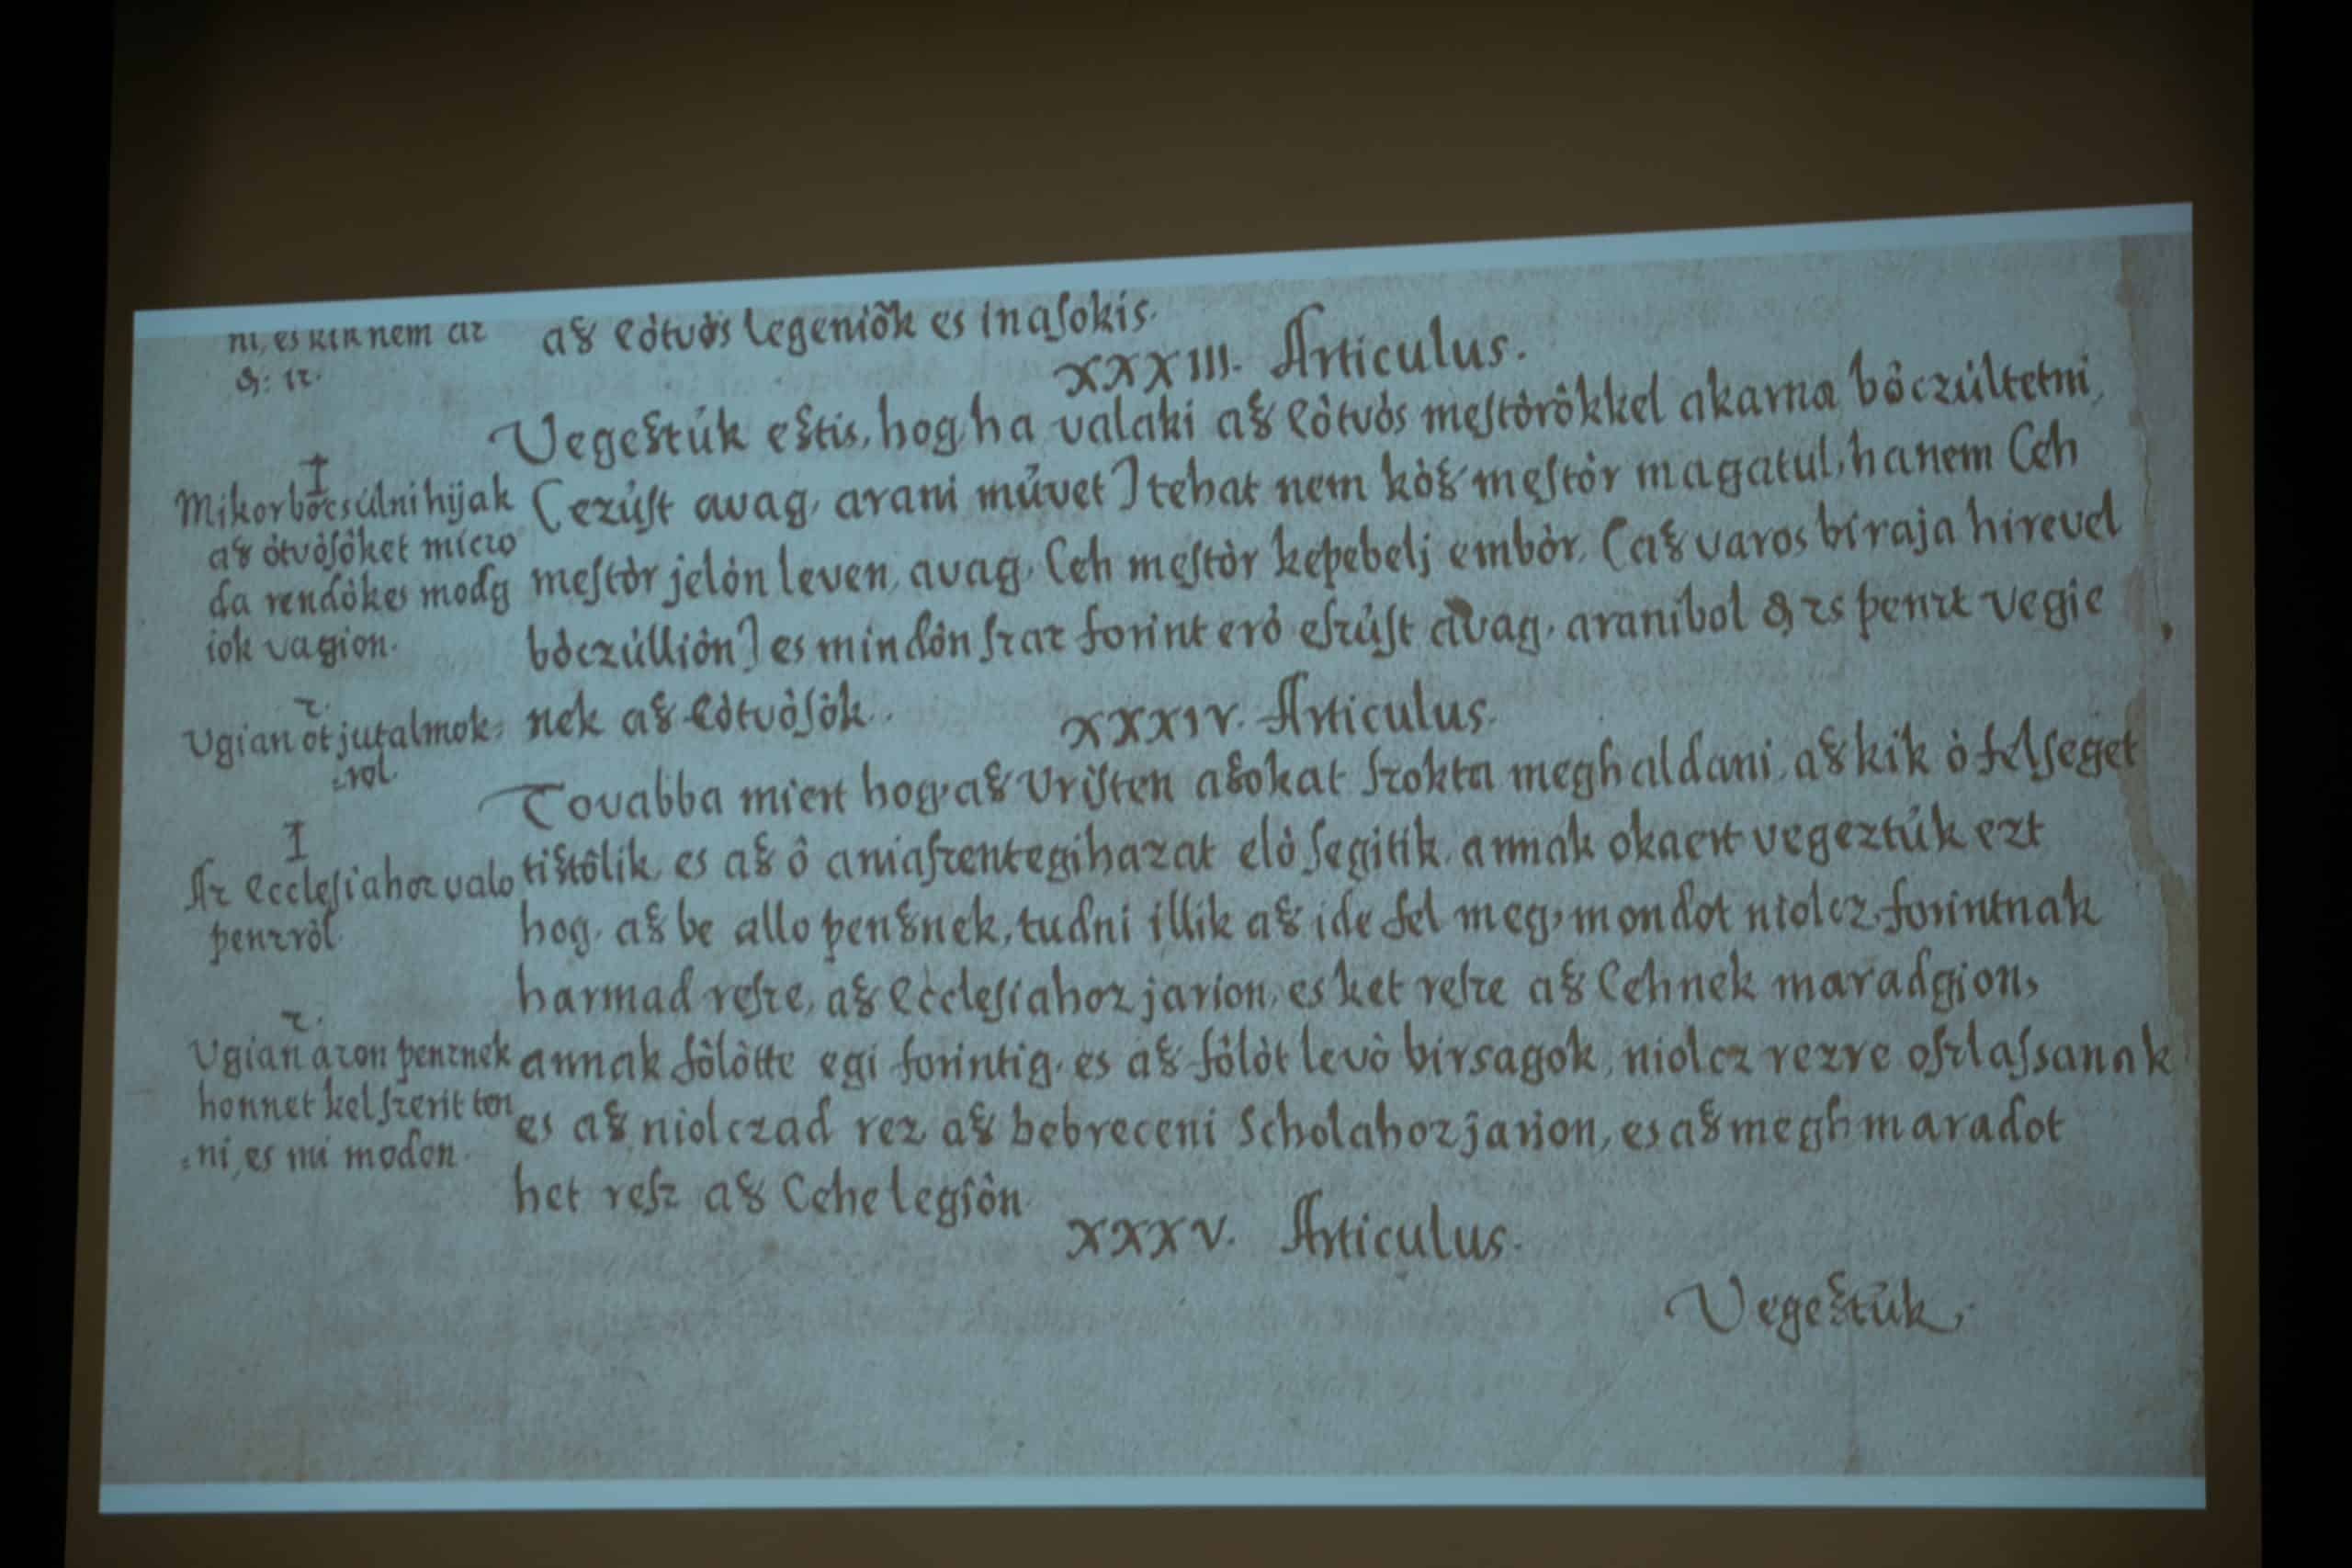 az eötvös legeniök es Inasokis.
XXXIII. Articulus.
Vegeztük eztis, hog, ha valaki az eötvös mestörökkel akarna böczültetni,
(ezüst avag, arani müvet) tehat nem köz mestör magatul, hanem Ceh
mestör jelön leven, avag, Ceh mestör kepebeli embör, (az varos biraja hirevel
böczülliön) es mindön szaz forint erö eszüst avag, aranibol d. 25 penzt vegie
nek az eötvösök.
XXXIV. Articulus.
Tovabba miert hog, az Vristen azokat szokta meghaldani, az kik ö felseget
tiztölik, es az ö aniaszentegihazat elö segitik, annak okaert vegeztük ezt
hog, az be allo penznek, tudni illik az ide fel meg, mondot niolcz, forintnak
harmad resze, az Ecclesiahoz jarion, es ket resze az Cehnek maradgion,
annak fölötte egi forintig, es az fölöt levö birsagok, niolcz rezre oszlassanak
es az niolczad rez az bebreceni Scholahoz jarion, es az megh maradot
het resz az Cehe legiön.
XXXV. Articulus.
Vegeztük,
ni, es kik nem az
1
Mikor böcsülni hijak
az ötvösöket micso
da rendökes modg
iok vagion.
2.
Ugian öt jutalmok=
=rol.
1
Az Ecclesiahoz valo
penzröl.
2.
Ugian azon penznek
honnet kel szerit ten
=ni, es mi modon.